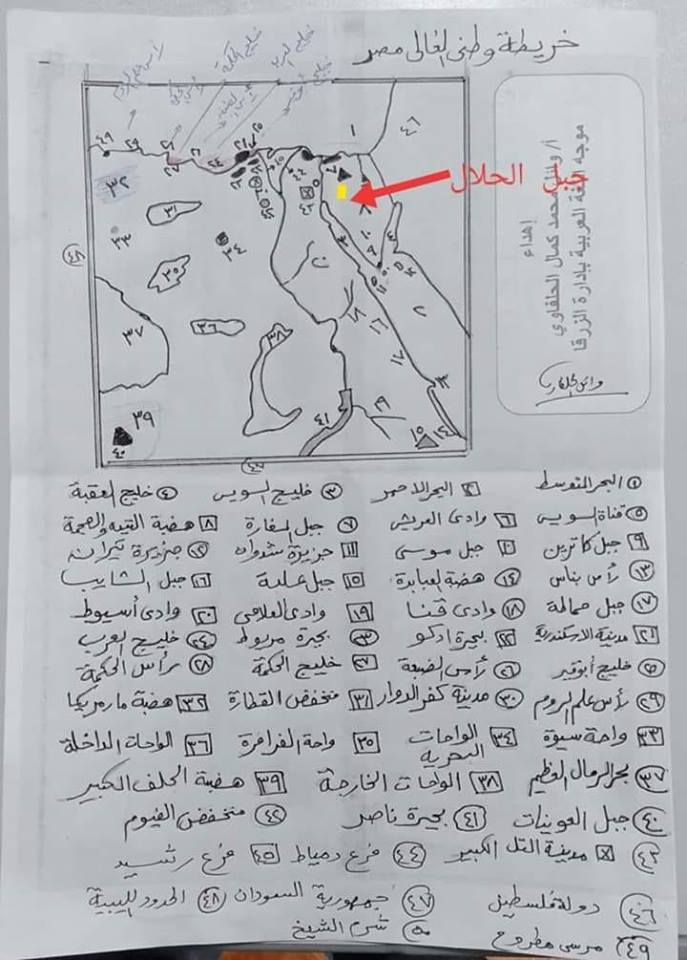 خريطة وطنى الغالى مصر
إهداء
أ/ وائل محمد كمال الحلفاوي
موجه اللغة العربية بإدارة الزرقا
جبل الحلال
① البحر المتوسط ② البحر الأحمر ③ خليج السويس ④ خليج العقبة
⑤ قناة السويس ٦ وادى العريش ٧ جبل المغارة ٨ هضبة التيه والعجمة
٩ جبل كاترين ١٠ جبل موسى ١١ جزيرة شدوان ١٢ جزيرة تيران
١٣ رأس بناس ١٤ هضبة لعبابدة ١٥ جبل علبة ١٦ جبل الشايب
١٧ جبل حمالة ١٨ وادى قنا ١٩ وادى العلاقى ٢٠ وادى أسيوط
٢١ مدينة الاسكندرية ٢٢ بحيرة ادكو ٢٣ بحيرة مريوط ٢٤ خليج العرب
٢٥ خليج أبوقير ٢٦ رأس الضبعة ٢٧ خليج الحكمة ٢٨ رأس الحكمة
٢٩ رأس علم الروم ٣٠ مدينة كفر الدوار ٣١ منخفض القطارة ٣٢ هضبة مارمريكا
٣٣ واحة سيوة ٣٤ الواحات البحرية ٣٥ واحة الفرافرة ٣٦ الواحات الداخلة
٣٧ بحر الرمال العظيم ٣٨ الواحات الخارجة ٣٩ هضبة الجلف الكبير
٤٠ جبل العوينات ٤١ بحيرة ناصر ٤٢ منخفض الفيوم
٤٣ مدينة التل الكبير ٤٤ فرع دمياط ٤٥ فرع رشيد
٤٦ دولة فلسطين ٤٧ جمهورية السودان ٤٨ الحدود الليبية
٤٩ مرسى مطروح ٥٠ شرم الشيخ